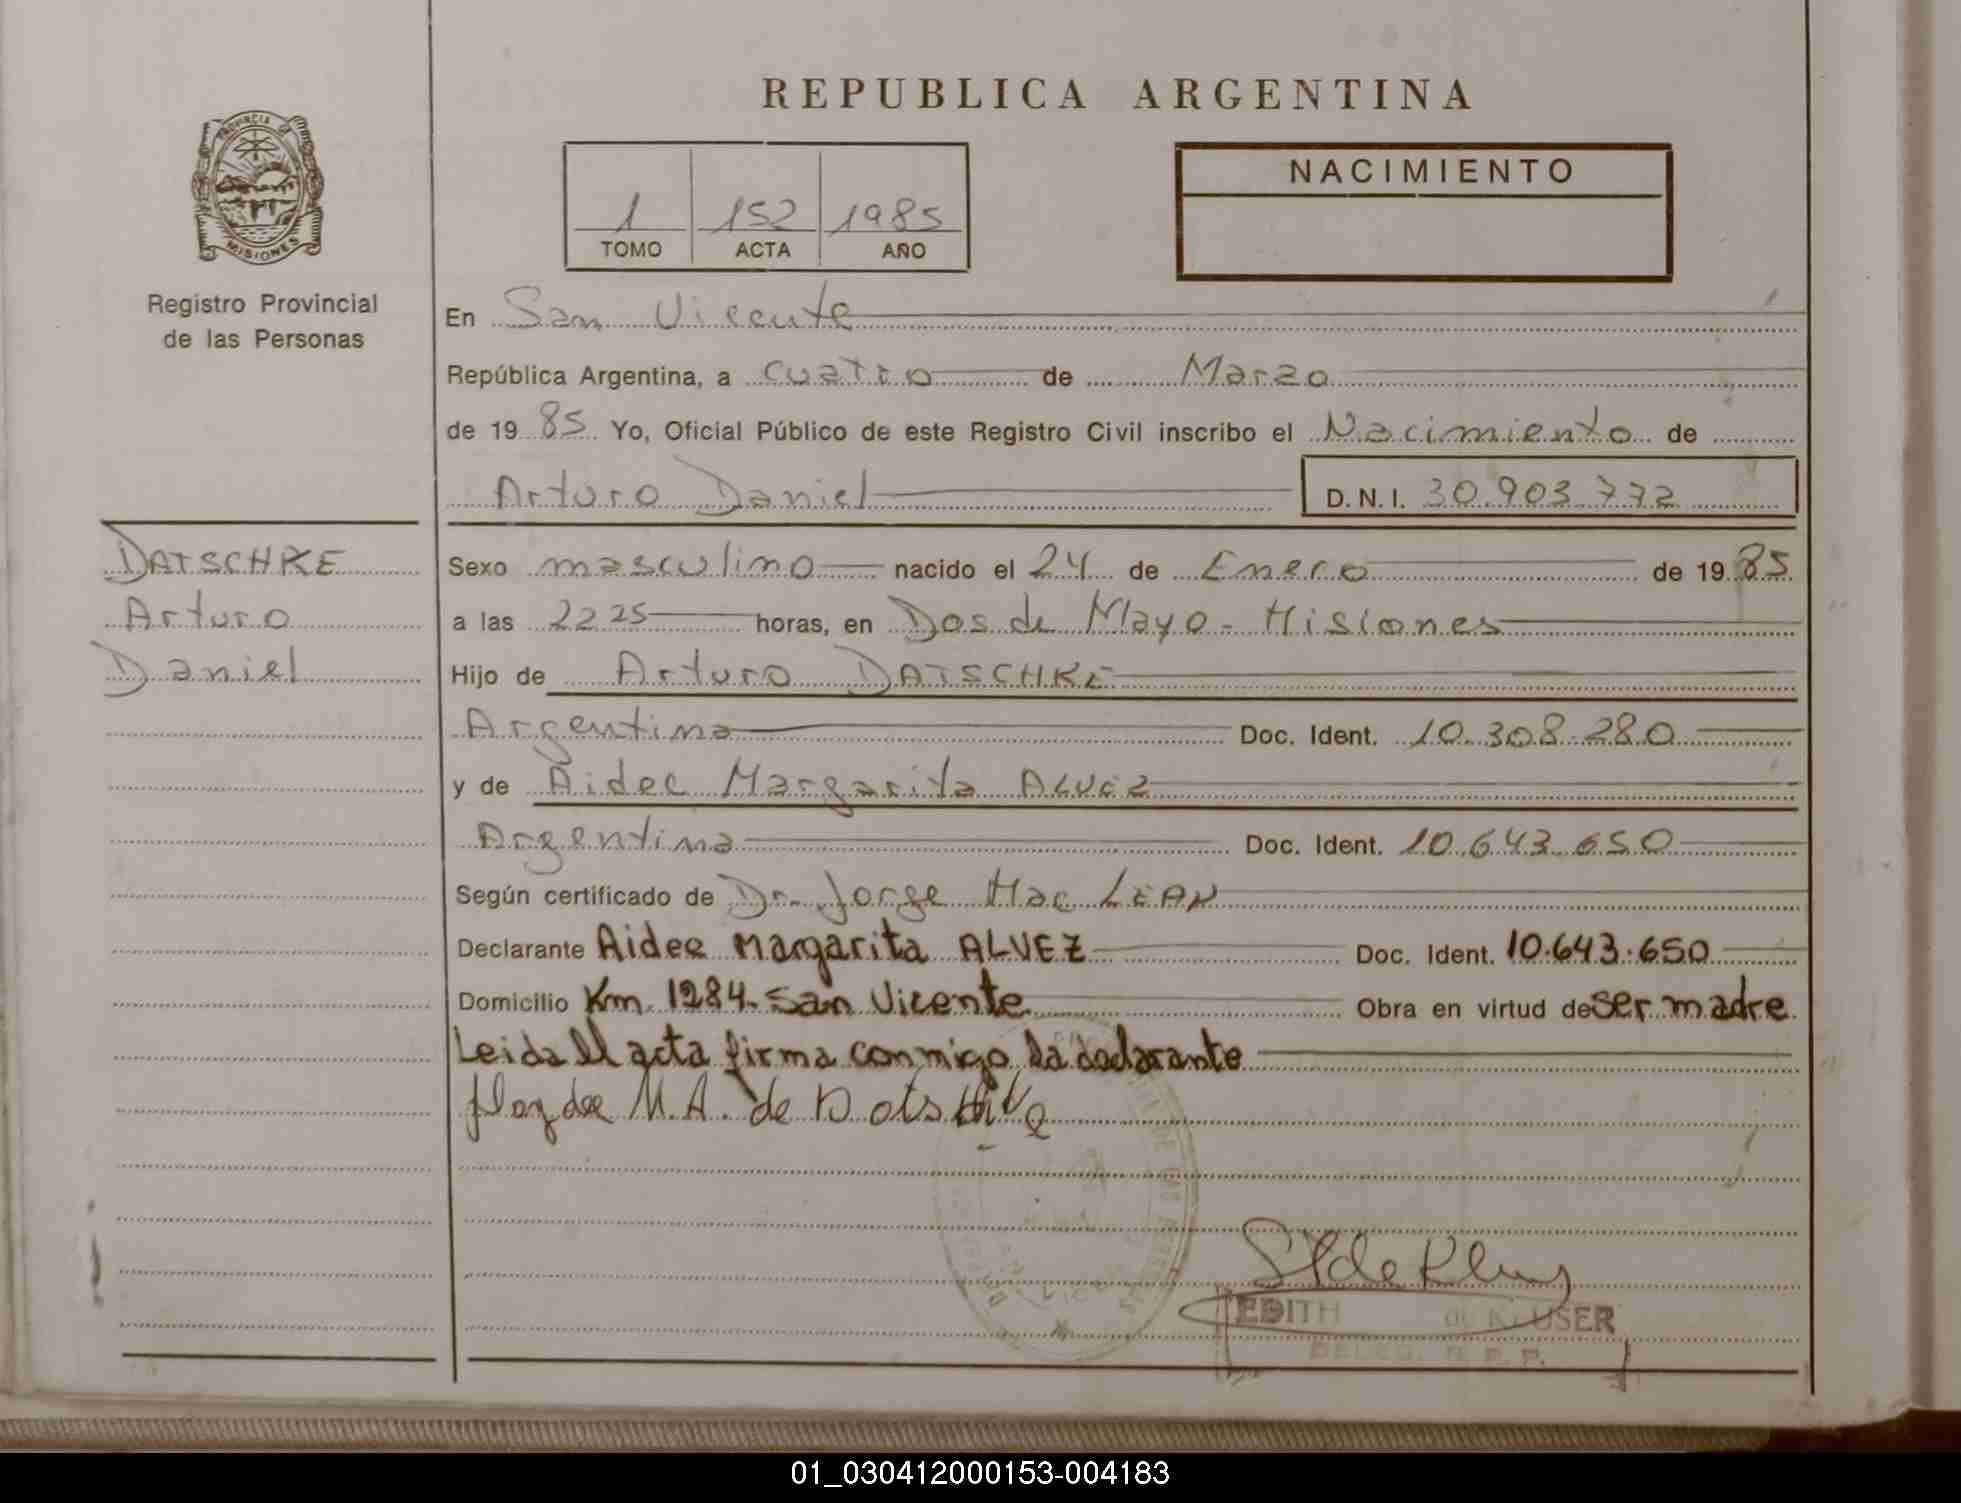 REPUBLICA ARGENTINA
PROVINCIA DE
MISIONES
Registro Provincial
de las Personas
1 152 1985
TOMO ACTA AÑO
NACIMIENTO
En San Vicente
República Argentina, a cuatro de Marzo
de 19 85 Yo, Oficial Público de este Registro Civil inscribo el Nacimiento de
Arturo Daniel D.N.I. 30.903.772
DATSCHKE
Arturo
Daniel
Sexo masculino nacido el 24 de Enero de 19 85
a las 22 25 horas, en Dos de Mayo - Misiones
Hijo de Arturo DATSCHKE
Argentina Doc. Ident. 10.308.280
y de Aidee Margarita ALVEZ
Argentina Doc. Ident. 10.643.650
Según certificado de Dr. Jorge Mac LEAN
Declarante Aidee Margarita ALVEZ Doc. Ident. 10.643.650
Domicilio Km. 1284. San Vicente Obra en virtud de ser madre
Leida el acta firma conmigo la declarante
M.A. de
EDITH de KLUSER
DELEG. R. P. P.
01_030412000153-004183